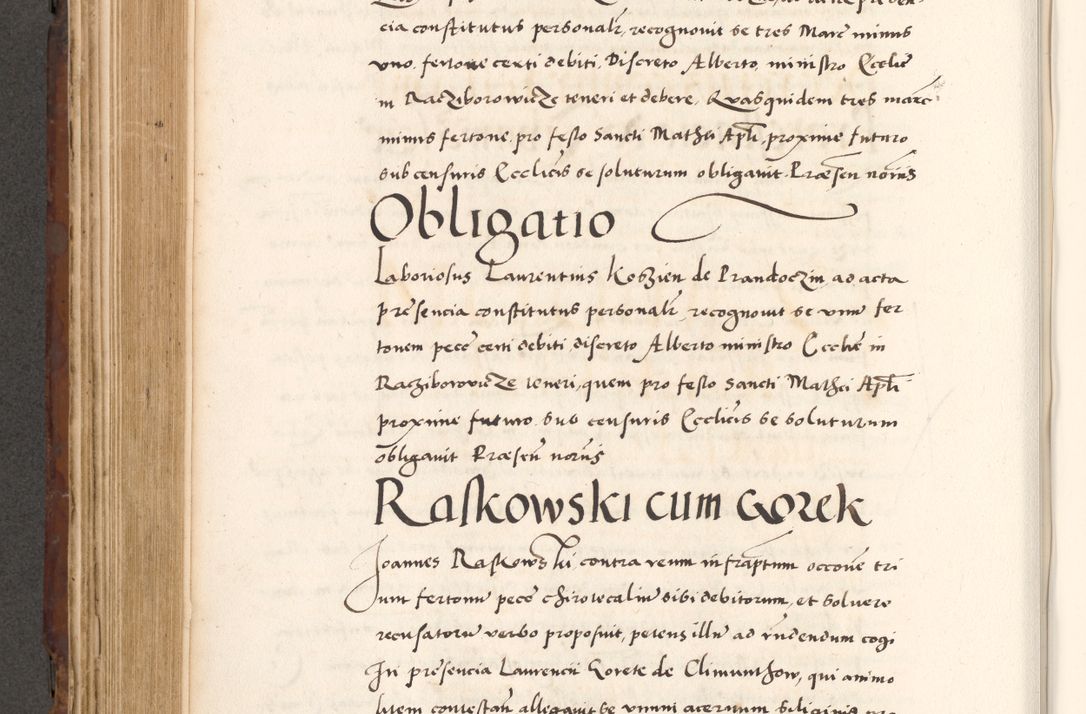 cia constitutus personalr, recognovit se tres Marc minus
vno, fertone certi debiti, Discreto Alberto ministro Ecclie
in Racziborowicze teneri et debere, Quasquidem tres marc
minus fertone, pro festo Sancti Mathei Apli, proxime futuro
sub censuris Ecclicis se soluturum obligavit. Præsen notris
Obligatio
Laboriosus Laurentius Koszien de Prandoczin, ad acta
præsencia constitutus personalr, recognovit se vnu fer
tonem pece certi debiti discreto Alberto ministro Ecclie in
Racziborovicze teneri, quem pro festo Sancti Mathei Apli
proxime futuro sub censuris Ecclicis se soluturum
obligavit Præsen notris
Raskowski cum Gorek
Joannes Raskowski contra reum infraptum occone tri
um fertonu pece chirotecaliu sibi debitorum, et solvere
recusatoru verbo proposuit, petens illu ad rndendum cogi
In præsencia Laurencii Gorete de Climunthow, qui animo
litem contestan allegavit se vnum acervum siliginis